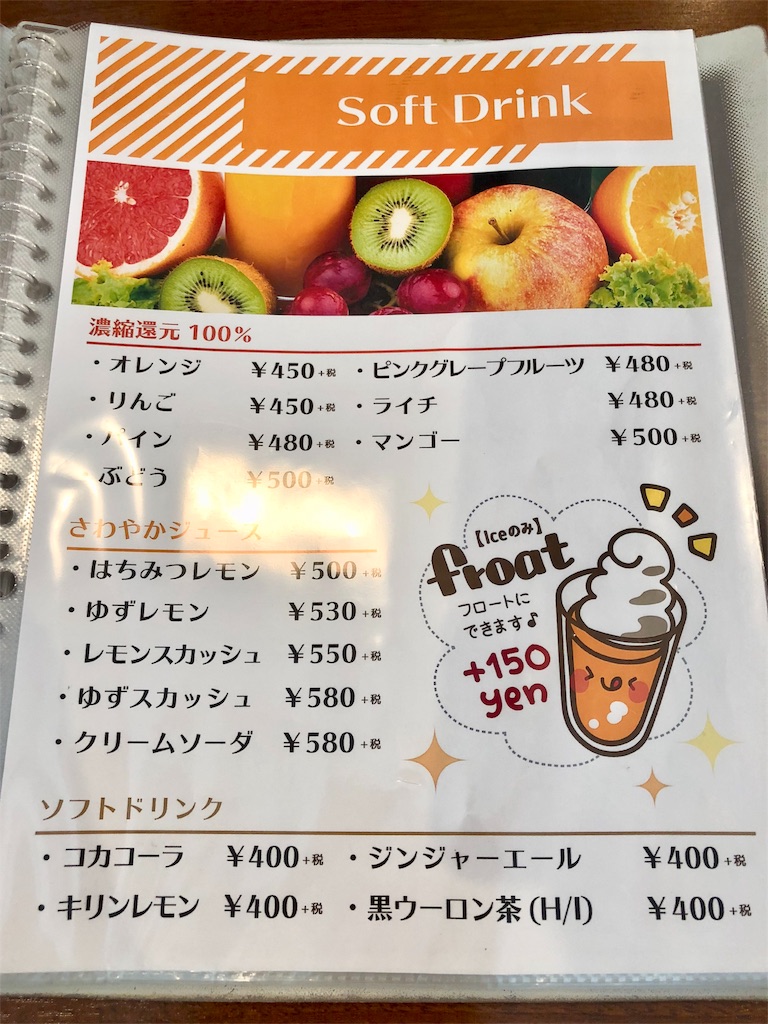 Soft Drink
濃縮還元 100%
・オレンジ ¥450+税
・りんご ¥450+税
・パイン ¥480+税
・ぶどう ¥500+税
・ピンクグレープフルーツ ¥480+税
・ライチ ¥480+税
・マンゴー ¥500+税
さわやかジュース
・はちみつレモン ¥500+税
・ゆずレモン ¥530+税
・レモンスカッシュ ¥550+税
・ゆずスカッシュ ¥580+税
・クリームソーダ ¥580+税
【Iceのみ】
froat
フロートに
できます♪
+150
yen
ソフトドリンク
・コカコーラ ¥400+税
・キリンレモン ¥400+税
・ジンジャーエール ¥400+税
・黒ウーロン茶 (H/I) ¥400+税